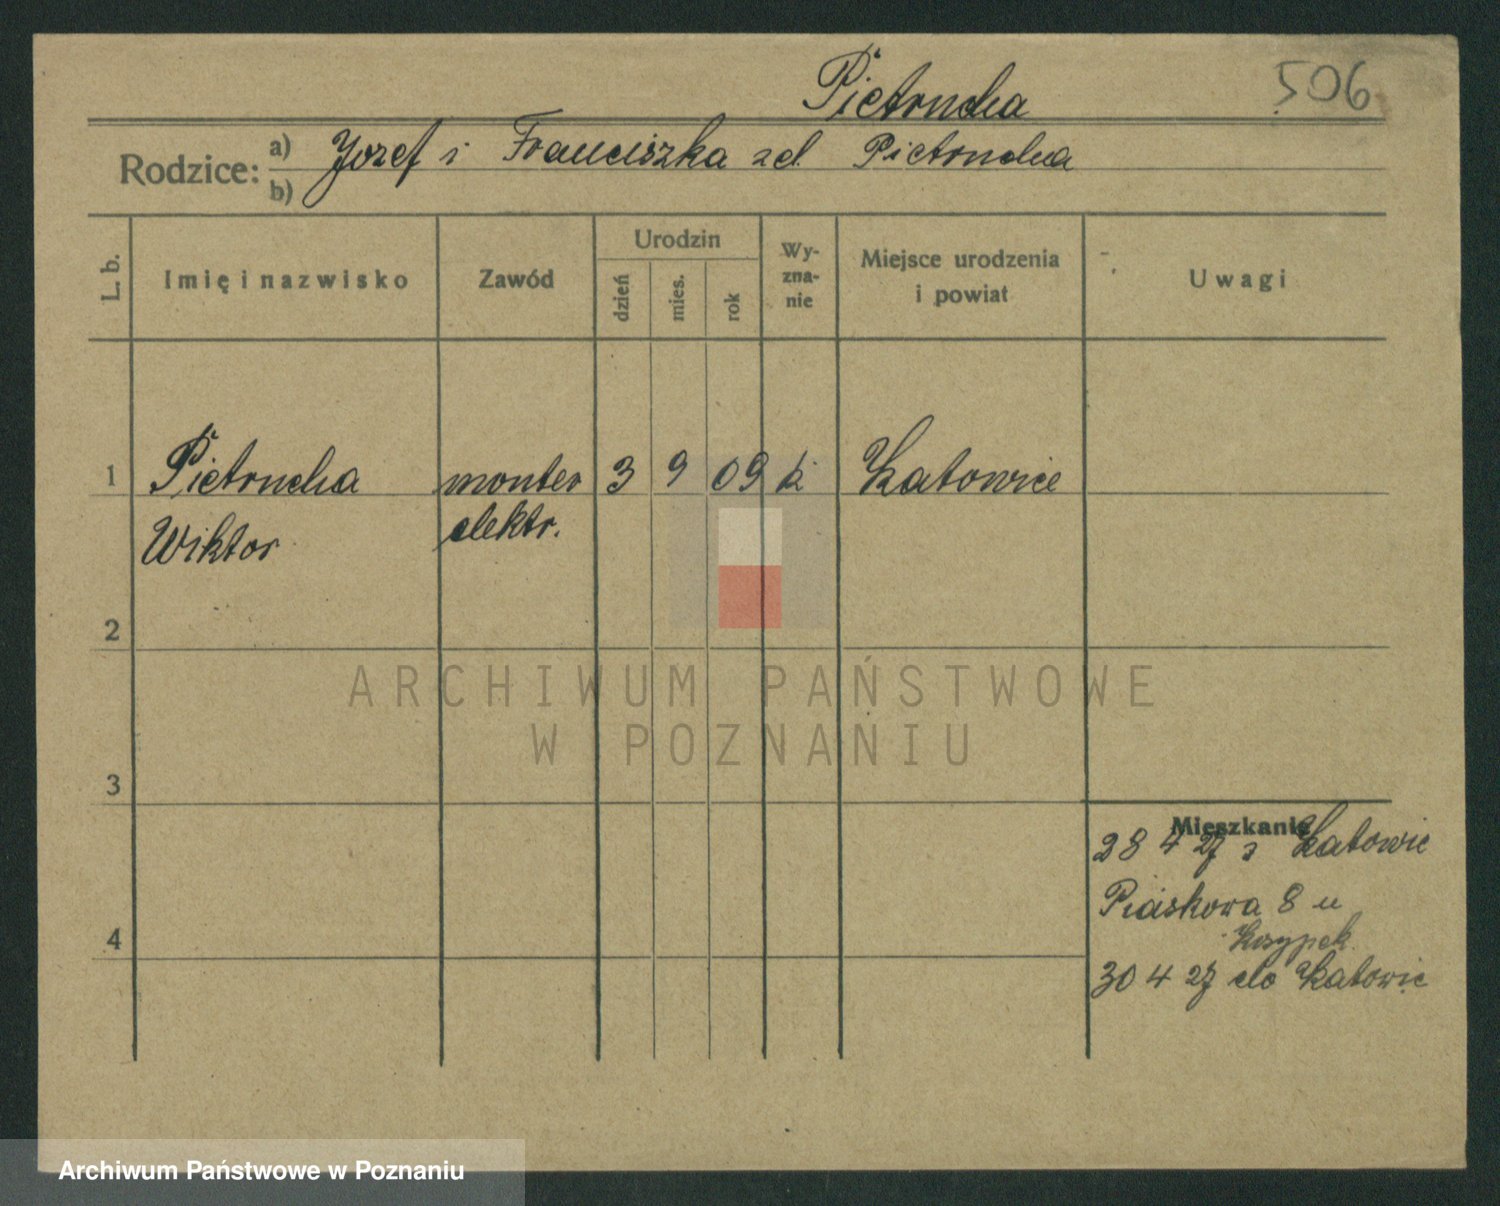 Pietrucha
506
Rodzice: a) Jozef i Franciszka zd. Pietrucha
b)
L. b.
Imię i nazwisko
Zawód
Urodzin
dzień
mies.
rok
Wy-
zna-
nie
Miejsce urodzenia
i powiat
Uwagi
1 Pietrucha monter 3 9 09 k Katowice
Wiktor elektr.
2
3
4
Mieszkanie
28 4 27 z Katowic
Piaskowa 8 u
30 4 27 do Katowic
ARCHIWUM PAŃSTWOWE
W POZNANIU
Archiwum Państwowe w Poznaniu